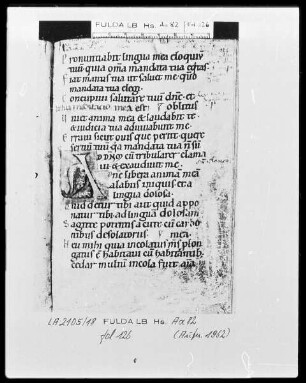 FULDA LB Hs. Aa 82 Fol. 126
Pronuntiabit lingua mea eloquiu
tuu quia oma mandata tua equi
Fiat manus tua ut saluet me quo
mandata tua elegi
Concupiui salutare tuu dne et
mea est oblitus
uiuet anima mea & laudabit te
& iudicia tua adiuuabunt me
Erraui sicut ouis que periit quere
seruu tuu qa mandata tua n su
AD DNM cu tribularer clama
ui & exaudiuit me
Dne libera anima mea
a labiis iniquis et a
lingua dolosa
Quid detur tibi aut quid appo
natur tibi ad lingua dolosam
Sagitte potentis acute cu car
bonibus desolatoriis mea
Heu mihi quia incolatus ms plon
gatus e habitaui cu habitantib
cedar multu incola fuit aia
LA 2105/18 FULDA LB Hs. Aa 82
fol 126 (Aufn. 1962)